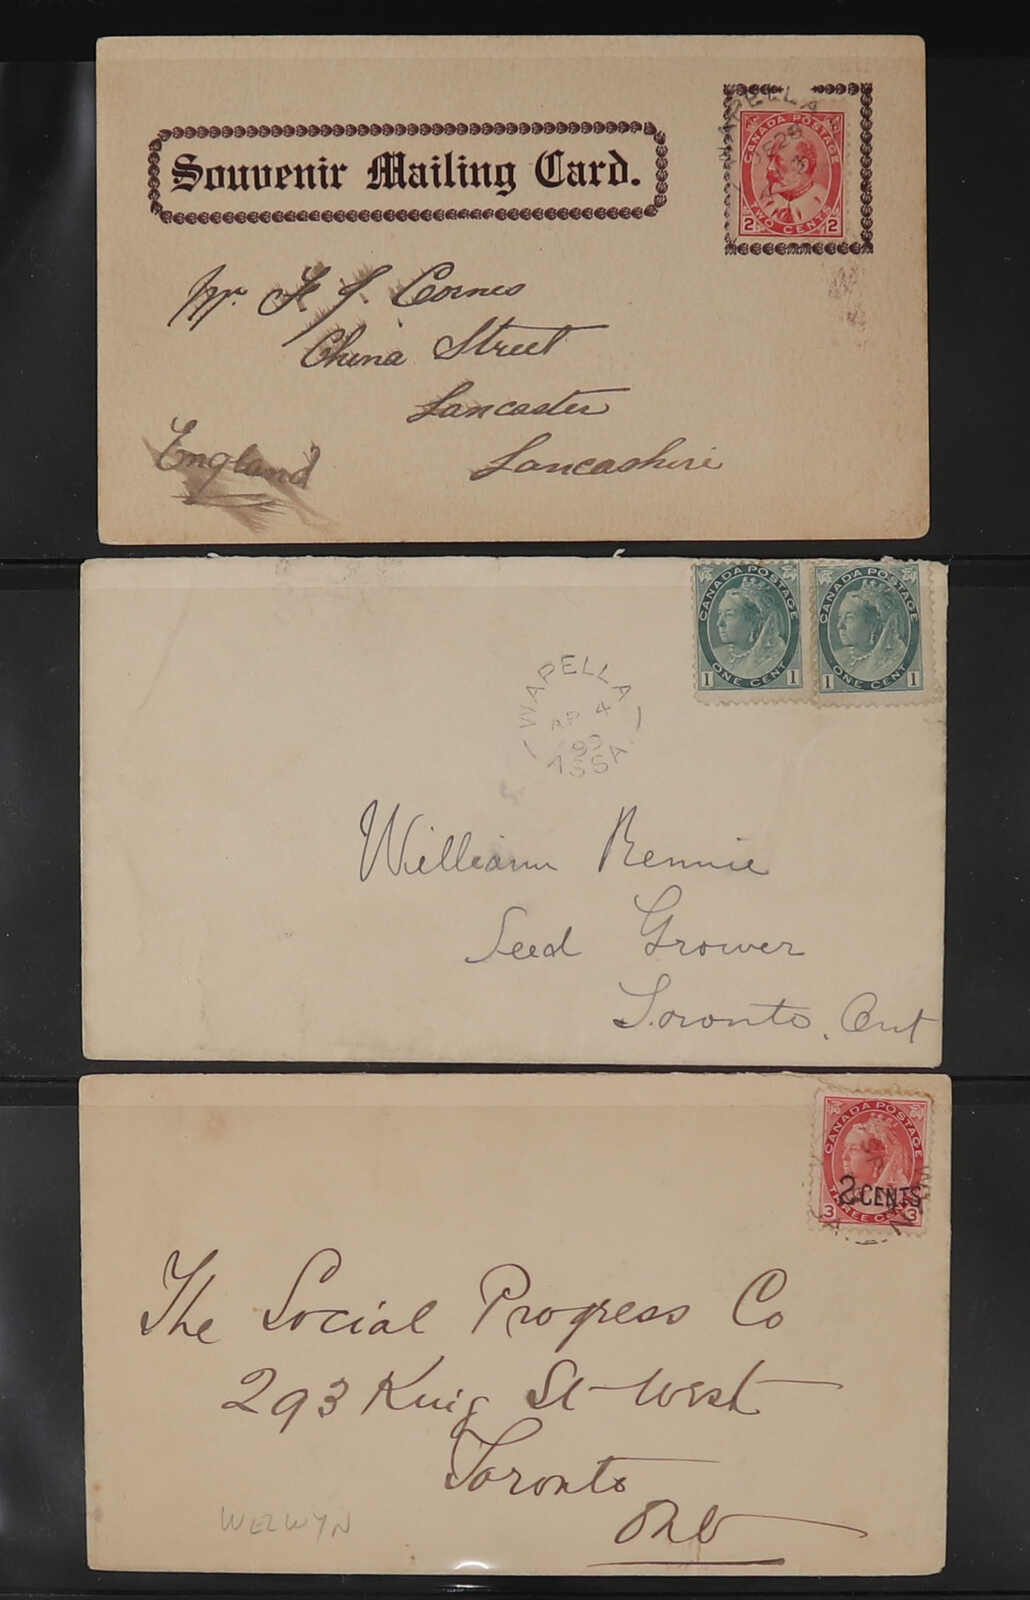 Souvenir Mailing Card.
WAPELLA
CANADA POSTAGE
2 TWO CENTS 2
Mr. F. J. Cornes
China Street
Lancaster
Lancashire
England
CANADA POSTAGE
1 ONE CENT 1
CANADA POSTAGE
1 ONE CENT 1
WAPELLA
AP 4
99
ASSA
William Rennie
Seed Grower
Toronto, Ont
CANADA POSTAGE
2 CENTS
3 THREE CENTS 3
The Social Progress Co
293 King St West
Toronto
Ont
WELWYN